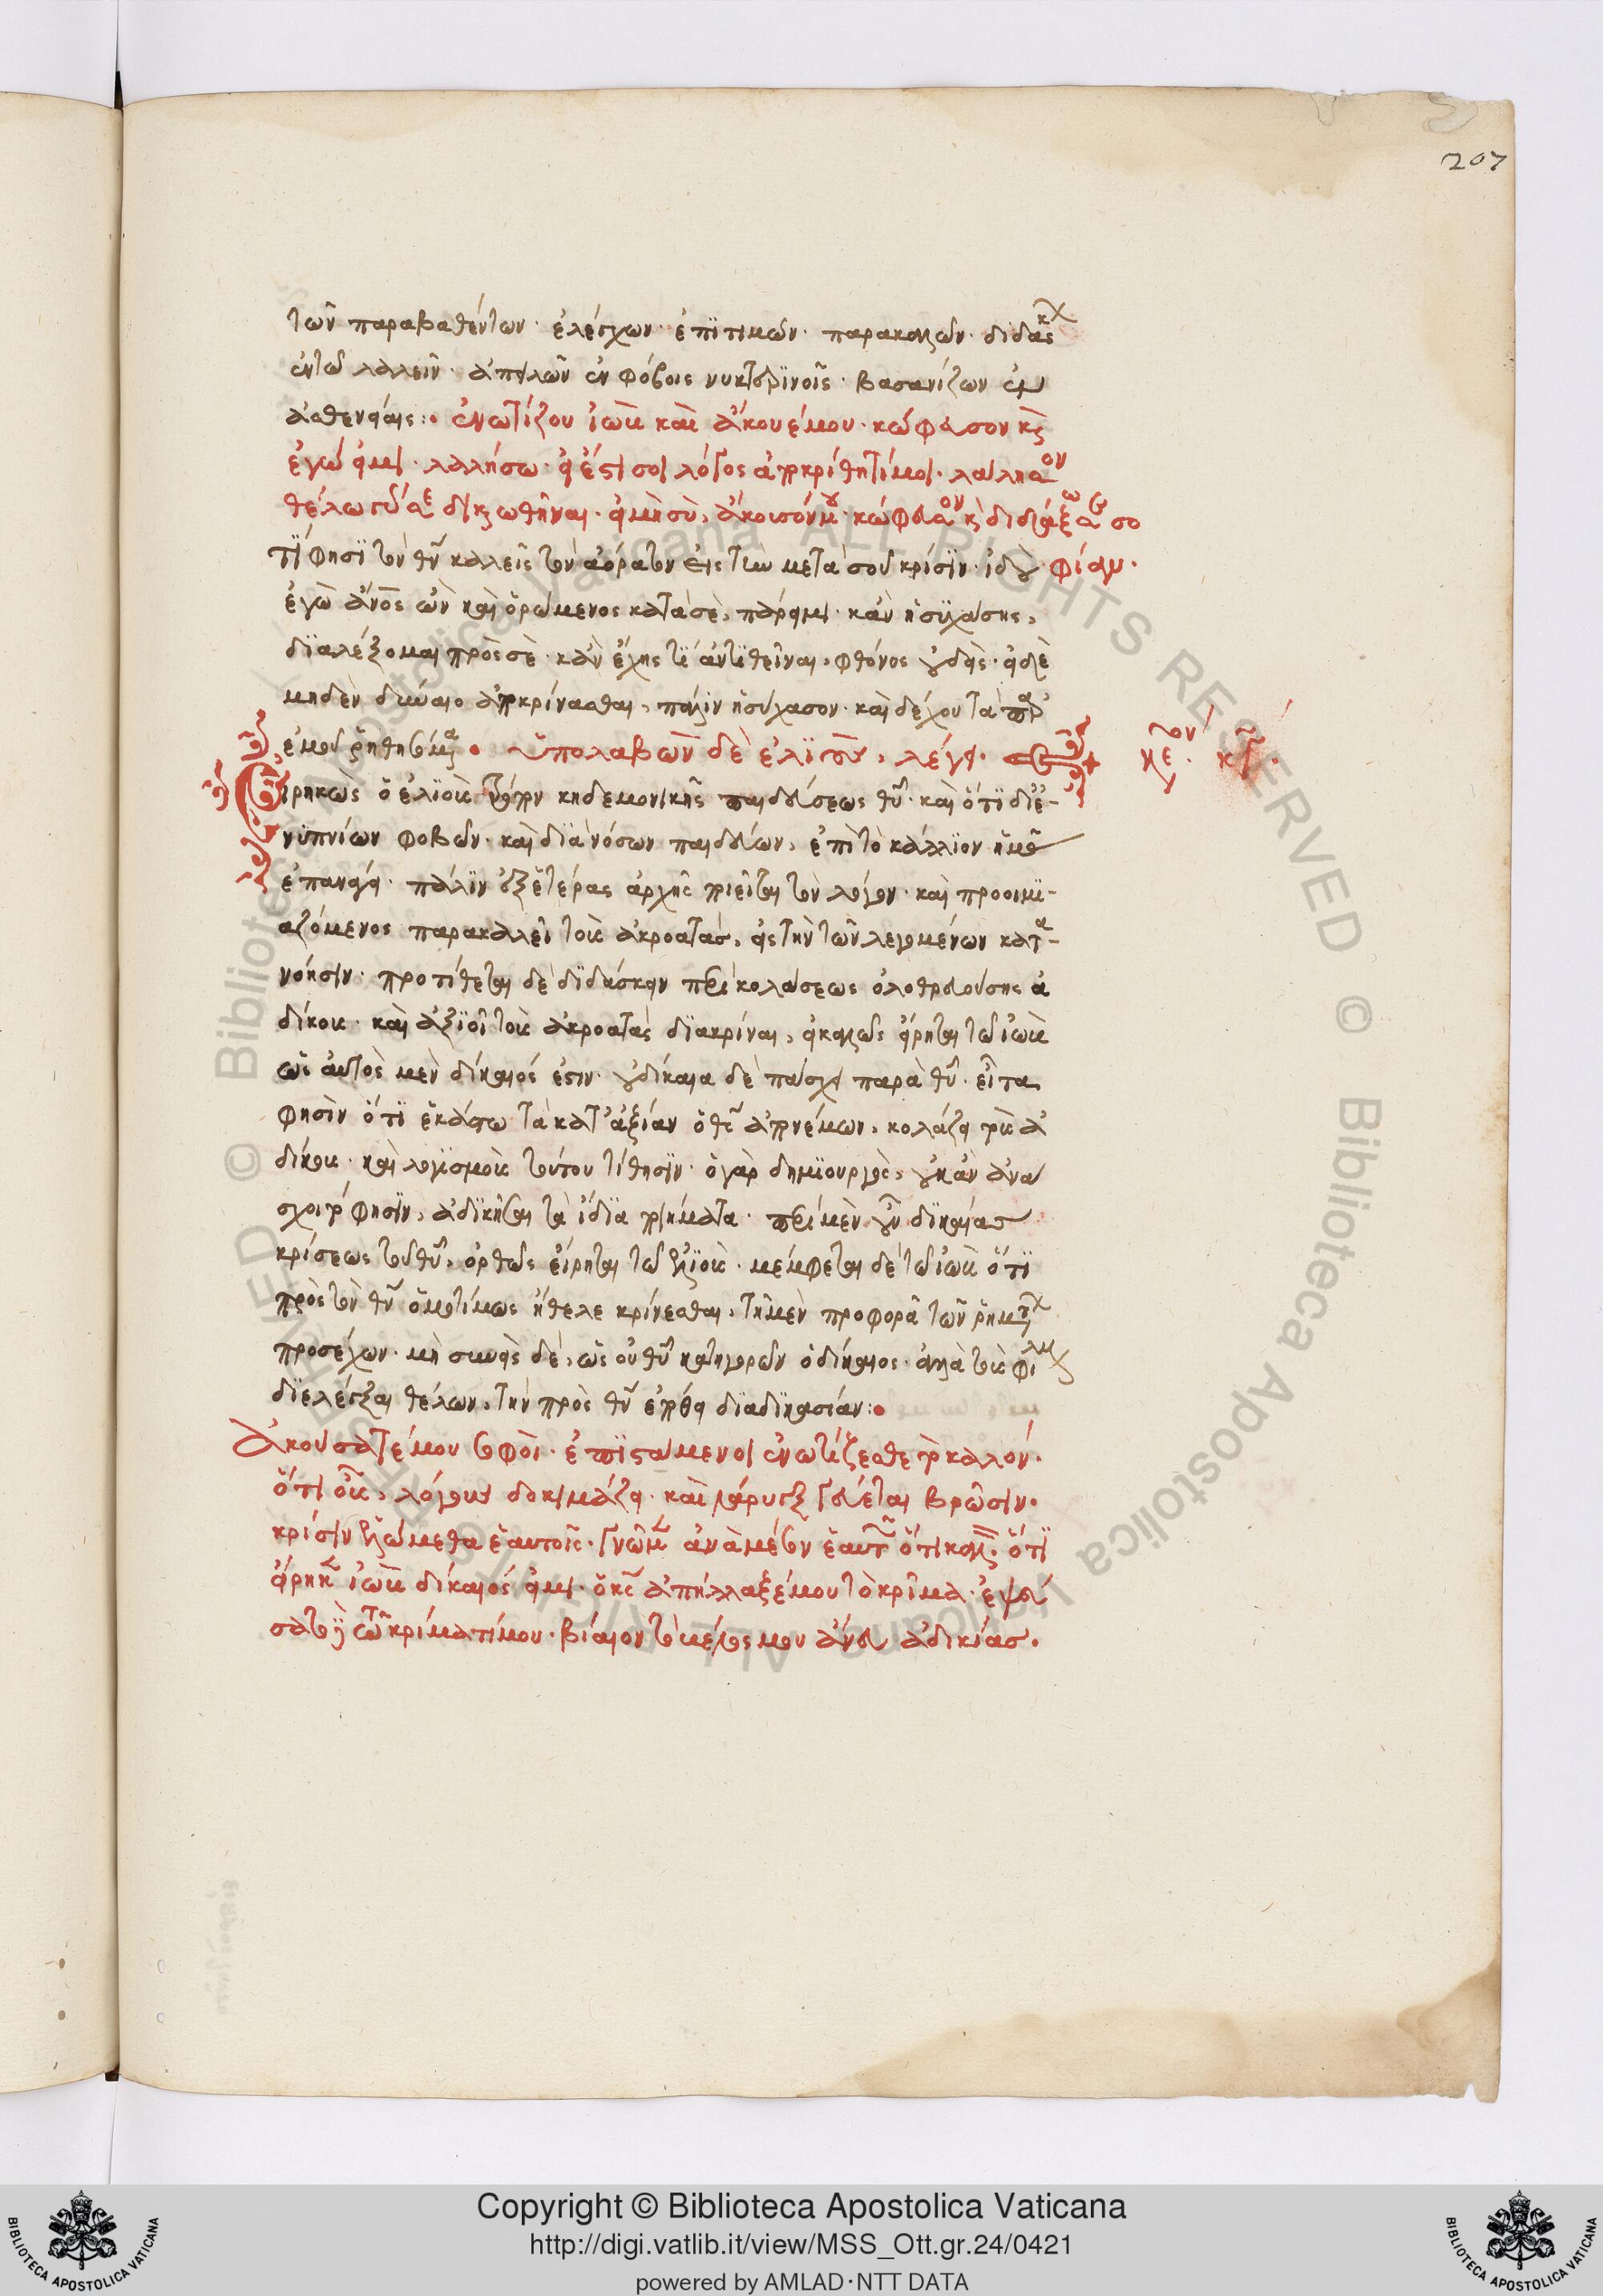 207
τῶν παραβαθέντων· ἐλέγχων· ἐπιτιμῶν· παρακαλῶν· διδασκ
ἐν τῶ λαλεῖν· ἀπειλῶν ἐν φόβοις νυκτερινοῖς· βασανίζων ἐν
ἀσθενείαις: ἐνωτίζου ἰὼβ καὶ ἄκουέ μου· κώφευσον κ
ἐγώ εἰμι λαλήσω· εἰ ἔστι σοι λόγος ἀποκρίθητί μοι· λάλησον
θέλω γὰρ δικαιωθῆναι· εἰ μὴ σὺ, ἄκουσόν μου· κώφευσον κ διδάξω σε σο
τί φησι τὸν θν καλεῖς τὸν ἀόρατον εἰς τὴν μετὰ σοῦ κρίσιν· ἰδοὺ φίαν·
ἐγὼ ἄνος ὢν καὶ ὁρώμενος κατὰ σὲ, πάρειμι· κἂν ἡσυχάσης,
διαλέξομαι πρὸς σὲ· κἂν ἔχης τι ἀντιθεῖναι, φθόνος οὐδεὶς· εἰ δὲ
μηδὲν δύναιο ἀποκρίνασθαι, πάλιν ἡσύχασον· καὶ δέχου τὰ παρ
ἐμοῦ ῥηθησόμενα· ὑπολαβὼν δὲ ἐλιοῦς, λέγει·
εἰρηκὼς ὁ ἐλιοῦς τρόπον κηδεμονικῆς παιδεύσεως θυ· καὶ ὅτι δι ἐ-
νυπνίων φοβῶν· καὶ διὰ νόσων παιδεύων, ἐπὶ τὸ κάλλιον ἡμᾶς
ἐπανάγει· πάλιν ἐξ ἑτέρας ἀρχῆς ποιεῖται τὸν λόγον· καὶ προοιμι-
αζόμενος παρακαλεῖ τοὺς ἀκροατὰς, εἰς τὴν τῶν λεγομένων κατα-
νόησιν· προτίθεται δὲ διδάσκειν περὶ κολάσεως ὀλοθρευούσης ἀ
δίκους· καὶ ἀξιοῖ τοὺς ἀκροατὰς διακρίναι, εἰ καλῶς εἴρηται τῶ ἰὼβ
ὡς αὐτὸς μὲν δίκαιός ἐστιν· οὐ δίκαια δὲ πάσχει παρὰ θυ· εἶτα
φησὶν ὅτι ἑκάστω τὰ κατ' ἀξίαν ὁ θς ἀπονέμων, κολάζει τοὺς ἀ
δίκους· καὶ λογισμοὺς τούτου τίθησιν· ὁ γὰρ δημιουργὸς, οὐκ ἂν ἀνά
σχοιτό φησιν, ἀδικῆσαι τὰ ἴδια ποιήματα· περὶ μὲν οὖν δικαίας
κρίσεως τοῦ θυ, ὀρθῶς εἴρηται τῶ ἐλιοῦς· μέμφεται δὲ τῶ ἰὼβ ὅτι
πρὸς τὸν θν ὁμοτίμως ἤθελε κρίνεσθαι, τῆ μὲν προφορᾶ τῶν ῥημάτ
προσέχων· μὴ συνεὶς δὲ, ὡς οὐ θυ κατηγορῶν ὁ δίκαιος· ἀλλὰ τοὺς φίλους
διελέγξαι θέλων, τὴν πρὸς θν ἐπόθει διαδικασίαν:
Ἀκούσατέ μου σοφοὶ· ἐπιστάμενοι ἐνωτίζεσθε τὸ καλόν·
ὅτι οὖς, λόγους δοκιμάζει· καὶ λάρυγξ γεύεται βρῶσιν·
κρίσιν ἑλώμεθα ἑαυτοῖς· γνῶμεν ἀνὰ μέσον ἑαυτῶν ὅτι καλόν· ὅτι
εἴρηκεν ἰὼβ δίκαιός εἰμι· ὁ κς ἀπήλλαξέ μου τὸ κρῖμα· ἐψεύ
σατο τῶ κρίματί μου· βίαιον τὸ βέλος μου ἄνευ ἀδικίας·
Copyright © Biblioteca Apostolica Vaticana
http://digi.vatlib.it/view/MSS_Ott.gr.24/0421
powered by AMLAD·NTT DATA
BIBLIOTECA APOSTOLICA VATICANA
BIBLIOTECA APOSTOLICA VATICANA